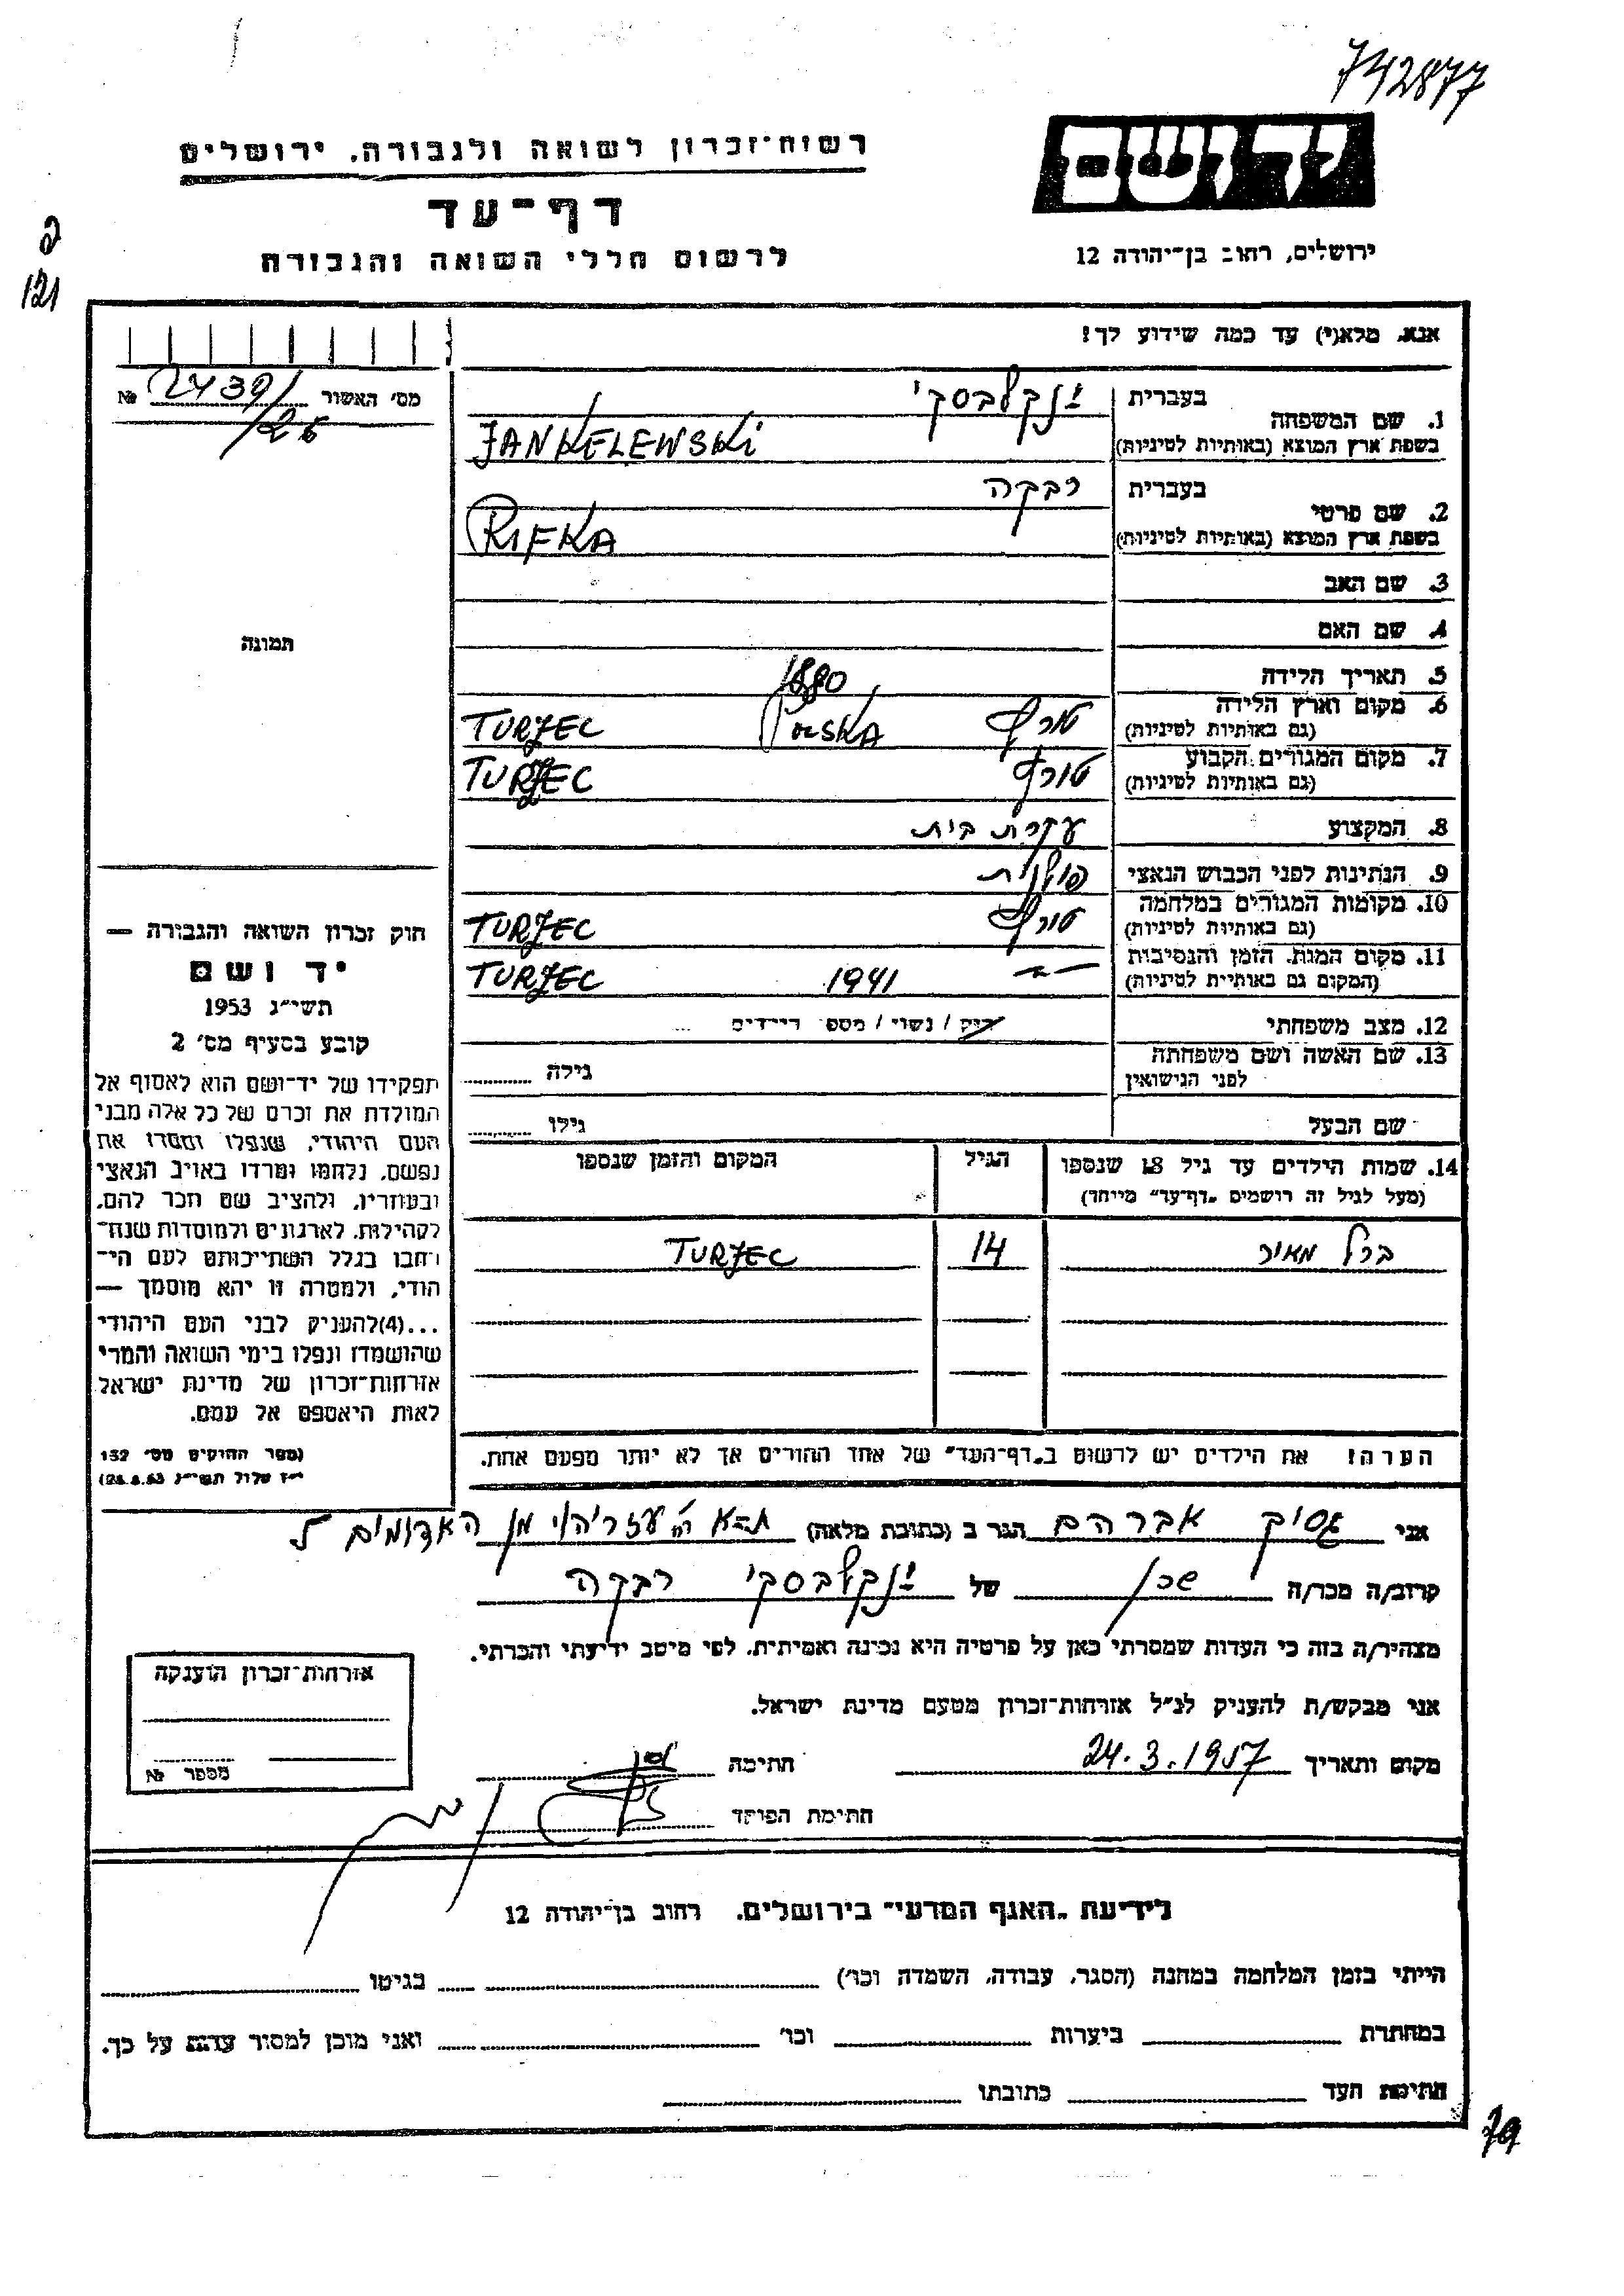 742877
רשות-זכרון לשואה ולגבורה. ירושלים
יד ושם
דף-עד
לרשום חללי השואה והגבורה
ירושלים, רחוב בן-יהודה 12
121
אנא, מלא(י) עד כמה שידוע לך!
מס' האשור № 2439/
26
1. שם המשפחה
בעברית ינקלבסקי
בשפת ארץ המוצא (באותיות לטיניות) JANKELEWSKI
2. שם פרטי
בעברית רבקה
בשפת ארץ המוצא (באותיות לטיניות) RIFKA
3. שם האב
4. שם האם
תמונה
5. תאריך הלידה 1880
6. מקום וארץ הלידה
(גם באותיות לטיניות) טורץ POLSKA TURZEC
7. מקום המגורים הקבוע
(גם באותיות לטיניות) טורץ TURZEC
8. המקצוע עקרת בית
9. הנתינות לפני הכבוש הנאצי פולנית
10. מקומות המגורים במלחמה
(גם באותיות לטיניות) טורץ TURZEC
11. מקום המות, הזמן והנסיבות
(המקום גם באותיות לטיניות) 1941 TURZEC
12. מצב משפחתי רוק / נשוי / מספר הילדים
13. שם האשה ושם משפחתה
לפני הנישואין גילה
שם הבעל גילו
14. שמות הילדים עד גיל 18 שנספו הגיל המקום והזמן שנספו
(מעל לגיל זה רושמים "דף-עד" מיוחד)
ברל מאיר 14 TURZEC
הערה: את הילדים יש לרשום ב"דף-העד" של אחד ההורים אך לא יותר מפעם אחת.
חוק זכרון השואה והגבורה —
יד ושם
תשי"ג 1953
קובע בסעיף מס' 2
תפקידו של יד-ושם הוא לאסוף אל
המולדת את זכרם של כל אלה מבני
העם היהודי, שנפלו ומסרו את
נפשם, נלחמו ומרדו באויב הנאצי
ובעוזריו, ולהציב שם וזכר להם,
לקהילות, לארגונים ולמוסדות שנח-
רבו בגלל השתייכותם לעם הי-
הודי, ולמטרה זו יהא מוסמך —
...(4)להעניק לבני העם היהודי
שהושמדו ונפלו בימי השואה והמרי
אזרחות-זכרון של מדינת ישראל
לאות היאספם אל עמם.
(ספר החוקים מס' 132
י"ז אלול תשי"ג 28.8.53)
אני גסיק אברהם הגר ב (כתובת מלאה) ת-א מן האדומים
קרוב/ה מכר/ה שכן של ינקלבסקי רבקה
מצהיר/ה בזה כי העדות שמסרתי כאן על פרטיה היא נכונה ואמיתית, לפי מיטב ידיעתי והכרתי.
אני מבקש/ת להעניק לנ"ל אזרחות-זכרון מטעם מדינת ישראל.
מקום ותאריך 24.3.1957 חתימה
חתימת הפוקד
אזרחות-זכרון הוענקה
מספר №
לידיעת "האגף המדעי" בירושלים, רחוב בן-יהודה 12
הייתי בזמן המלחמה במחנה (הסגר, עבודה, השמדה וכו') בגיטו
במחתרת ביערות וכו' ואני מוכן למסור עדות על כך.
חתימת העד כתובתו
79